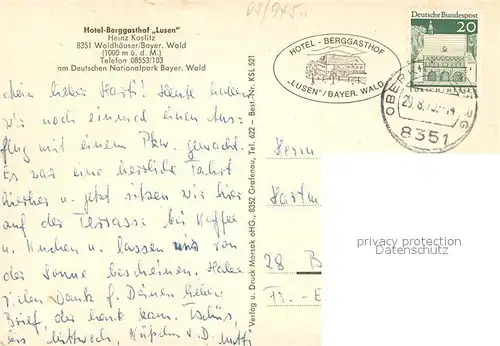 03/945.
Hotel-Berggasthof „Lusen"
Heinz Koslitz
8351 Waldhäuser/Bayer. Wald
(1000 m ü. d. M.)
Telefon 08553/103
am Deutschen Nationalpark Bayer. Wald
HOTEL - BERGGASTHOF
„LUSEN"/BAYER. WALD
Deutsche Bundespost
20
8351
Mein lieber Harti! Heute haben
wir noch einmal einen Aus-
flug mit einem Pkw. gemacht.
Es war eine herrliche Fahrt
hierher u. jetzt sitzen wir hier
auf der Terrasse bei Kaffee
u. Kuchen u. lassen uns von
der Sonne bescheinen. Habe
Dank f. Deinen lieben
Brief, der heut kam. Tschüs,
bis Mittwoch, Küßchen v. D. Mutti
Verlag u. Druck Morsak oHG., 8352 Grafenau, Tel. 622 – Best.-Nr. KSL 521
Herrn
28 B
privacy protection
Datenschutz